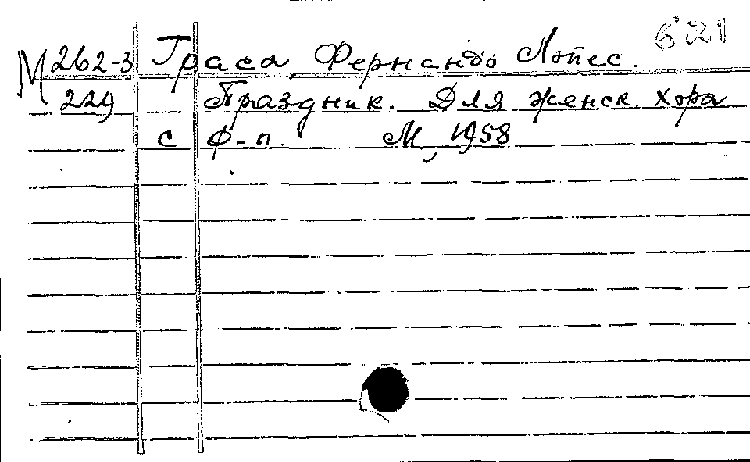 М262-3 Граса Фернандо Лопес. 621
229 Праздник. Для женск хора
с ф-п. М, 1958